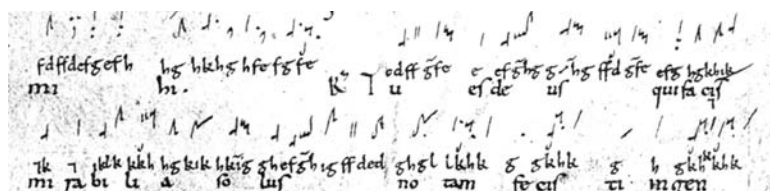 fdffdefgefh hg hkhghfefgfe edffgfe e efghgg hgffdgfe efg hgkhik
mi hi. R T u es de us qui fa cis
ik iklk kkh hgkik hkig ghefghigffded ghgl lkhk g gkhk g h
mi ra bi li a so lus no tam fe cis ti in gen